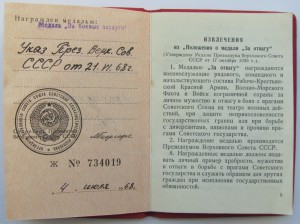 Награжден медалью:
Медаль „За боевые заслуги"
Указ През. Верх. Сов.
СССР от 21.VI.68г.
Ж № 734019
4 июля 68
ИЗВЛЕЧЕНИЯ
из „Положения о медали „За отвагу"
(Утверждено Указом Президиума Верховного Совета
СССР от 17 октября 1938 г.)
1. Медалью „За отвагу" награждаются
военнослужащие рядового, командного и
начальствующего состава Рабоче-Крестьян-
ской Красной Армии, Военно-Морского
Флота и Войск пограничной охраны за
личное мужество и отвагу в боях с врагами
Советского Союза на театре военных дей-
ствий, при защите неприкосновенности
государственных границ или при борьбе
с диверсантами, шпионами и прочими вра-
гами Советского государства.
2. Награждение медалью производится
Президиумом Верховного Совета СССР.
6. Награжденные медалью должны пода-
вать личный пример храбрости, мужества
и отваги в борьбе с врагами государства,
служить образцом для других граждан
при исполнении государственных
обязанностей.